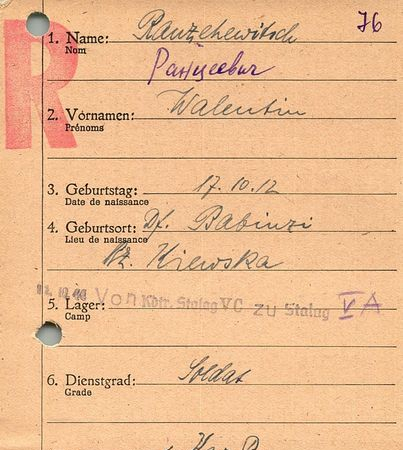 R
76
1. Name: Ranzehewitsch
Nom
Ранцевич
2. Vornamen: Walentin
Prénoms
3. Geburtstag: 17.10.12
Date de naissance
4. Geburtsort: Df. Babinzi
Lieu de naissance
Kiewska
Von Kdtr. Stalag VC zu Stalag VA
5. Lager:
Camp
6. Dienstgrad: Soldat
Grade